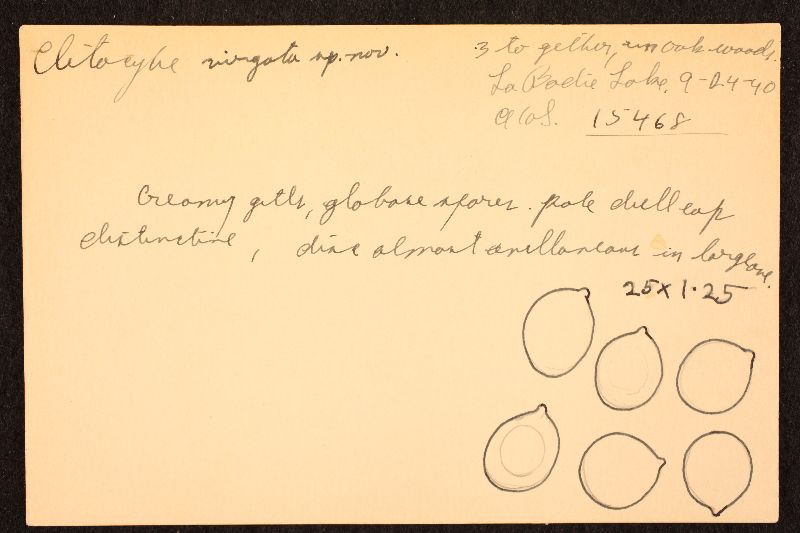 Clitocybe virgata sp. nov.
3 together, in oak woods.
La Badie Lake, 9-24-40
AHS. 15468
Creamy gills, globose spores. pale dull cap
distinctive, disc almost avellaneous in large one.
25 x 1.25